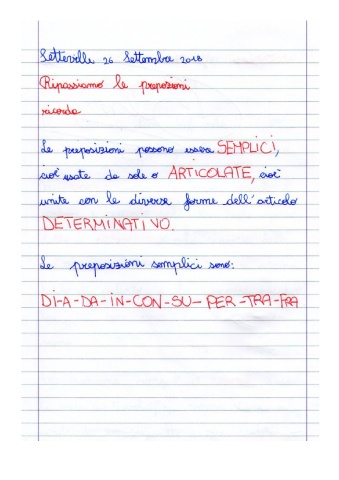 Setteville 26 Settembre 2018
Ripassiamo le preposizioni
ricorda
Le preposizioni possono essere SEMPLICI,
cioè usate da sole o ARTICOLATE, cioè
unite con le diverse forme dell'articolo
DETERMINATIVO.
Le preposizioni semplici sono:
DI-A-DA-IN-CON-SU-PER-TRA-FRA